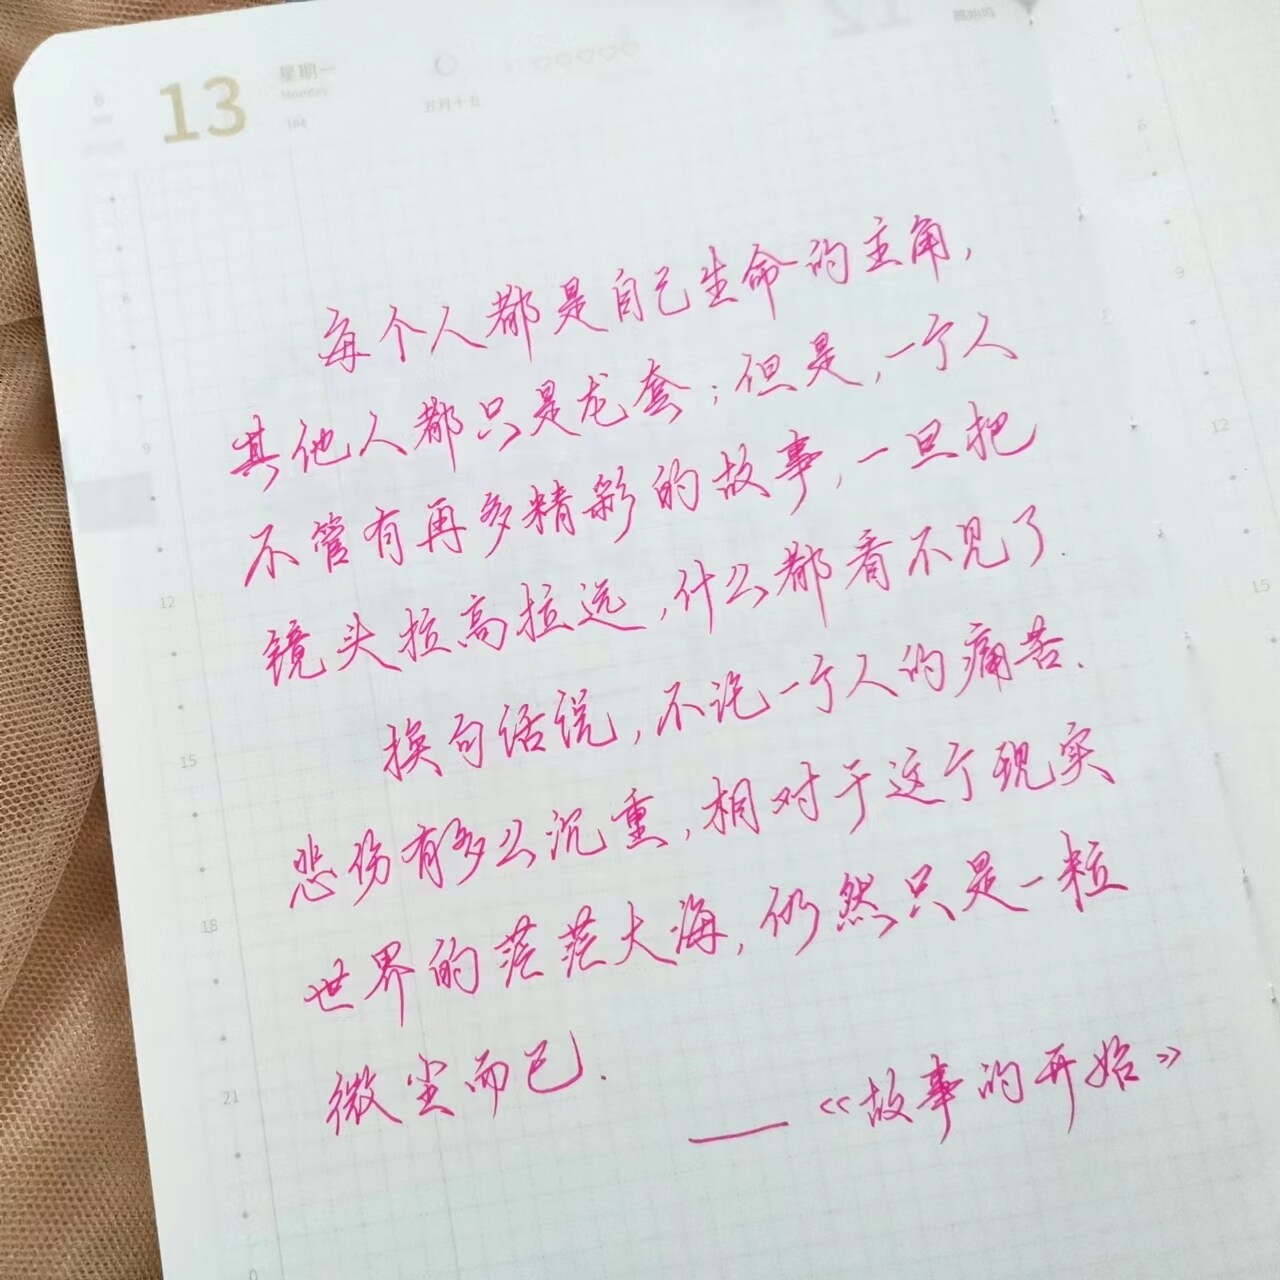 13
星期一
Monday
164
五月十五
每个人都是自己生命的主角，
其他人都只是龙套；但是，一个人
不管有再多精彩的故事，一旦把
镜头拉高拉远，什么都看不见了.
换句话说，不论一个人的痛苦.
悲伤有多么沉重，相对于这个现实
世界的茫茫大海，仍然只是一粒
微尘而已.
——《故事的开始》
6
9
12
15
18
21
0
6
9
12
15